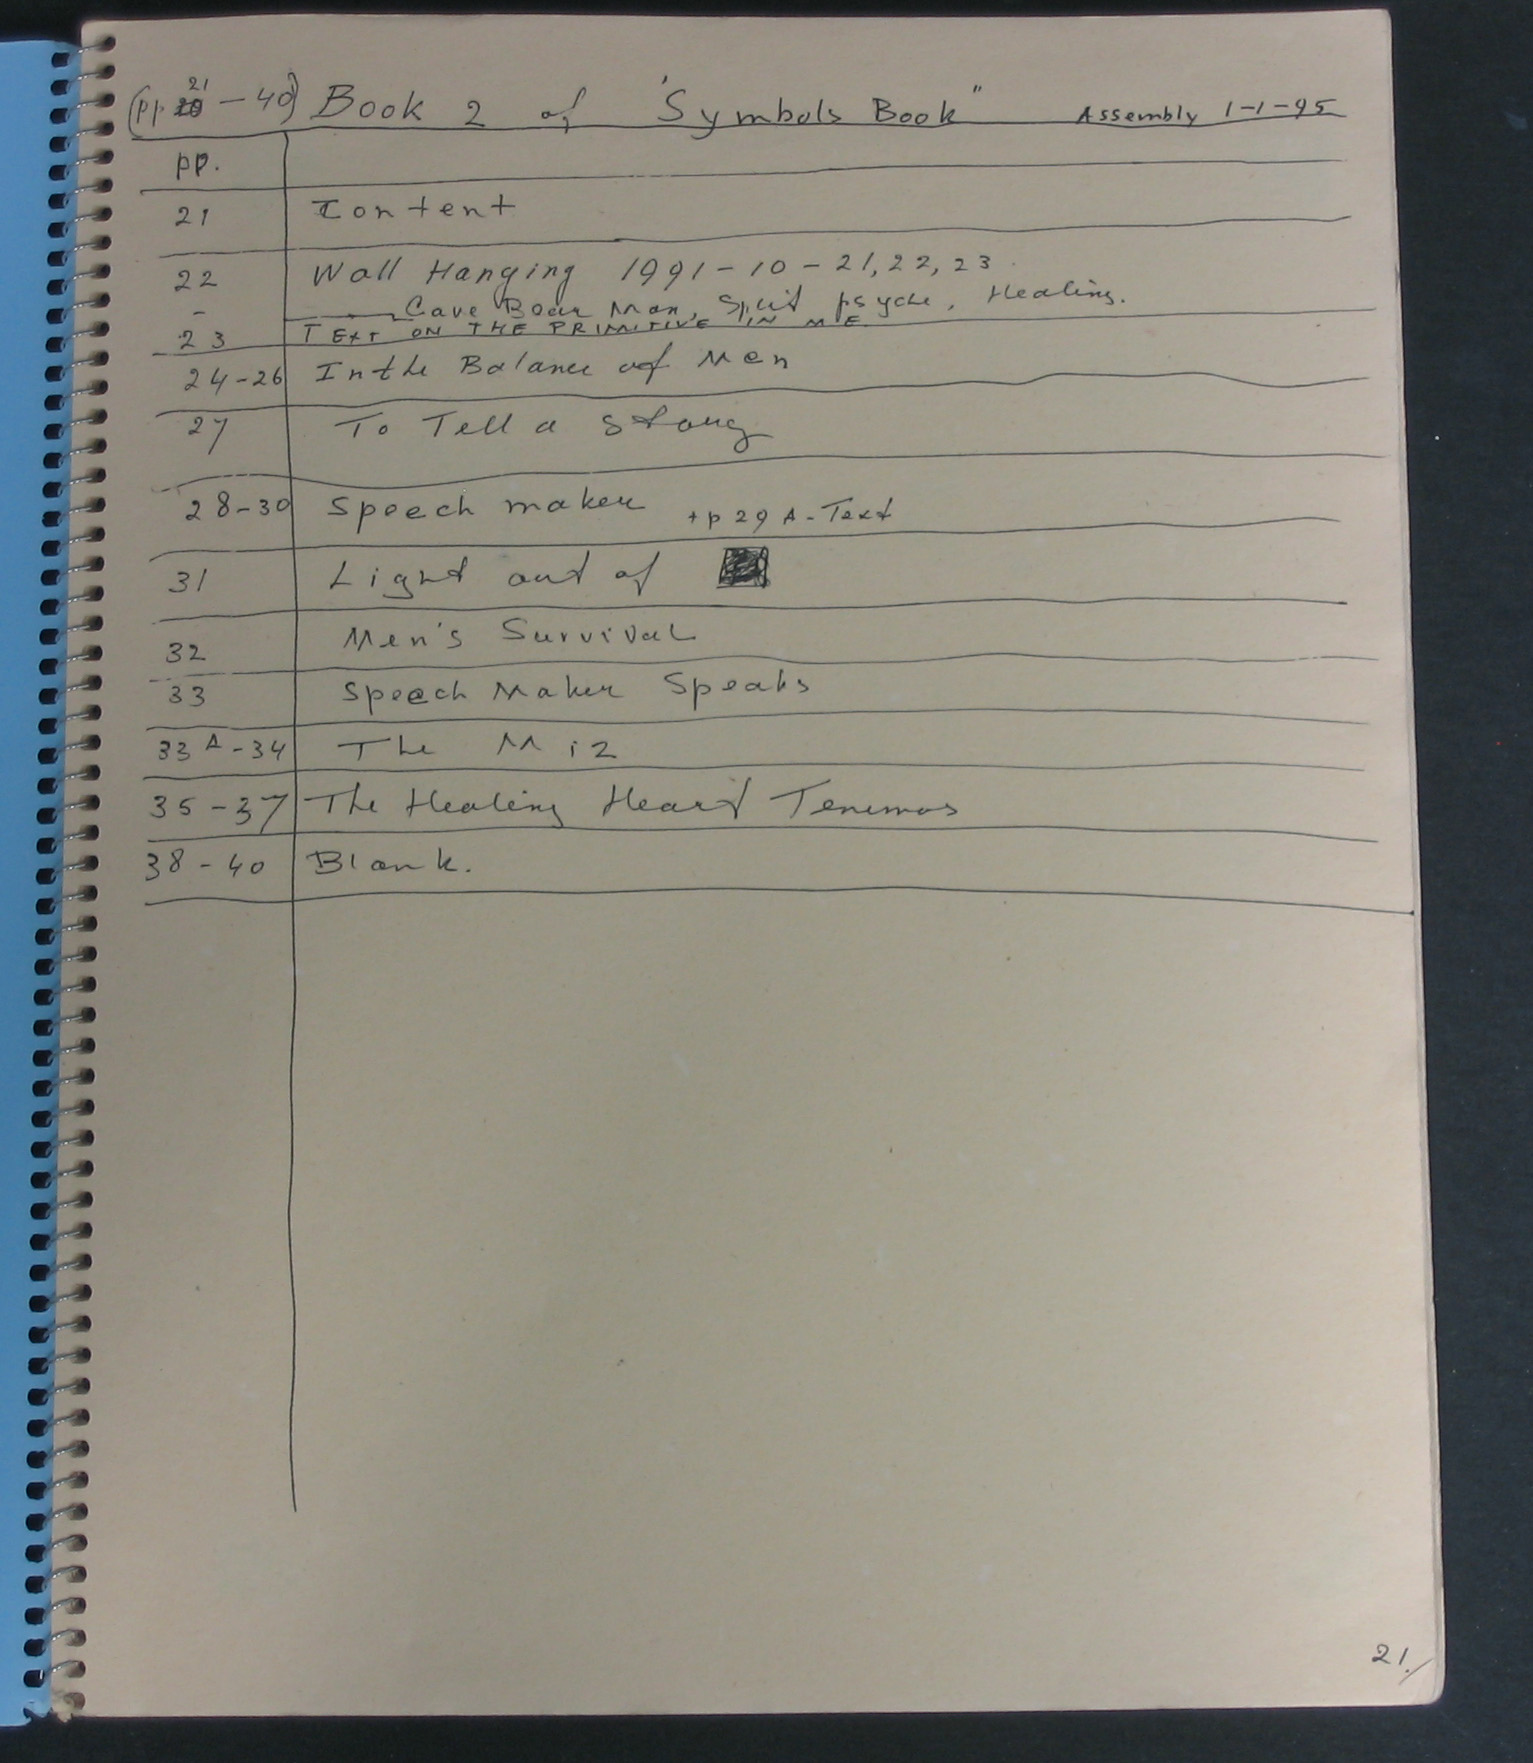 (pp 21 - 40) Book 2 of "Symbols Book" Assembly 1-1-95
pp.
21 Content
22 Wall Hanging 1991-10-21,22,23.
- Cave Bear Man, Split psyche, Healing.
23 TEXT ON THE PRIMITIVE IN ME
24-26 In the Balance of Men
27 To Tell a Story
28-30 Speech maker +p 29 A-Text
31 Light out of
32 Men's Survival
33 Speech Maker Speaks
33A-34 The Miz
35-37 The Healing Heart Tenemos
38-40 Blank.
21.